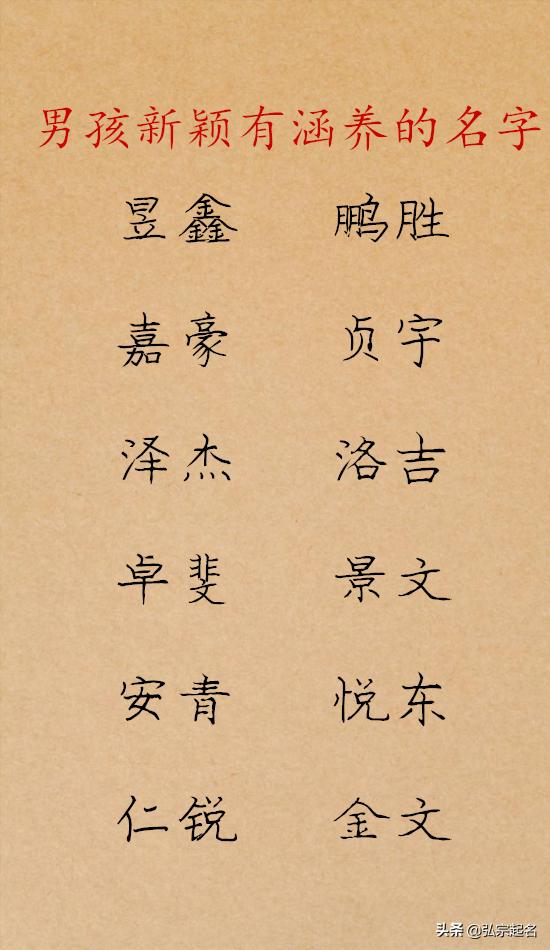 男孩新颖有涵养的名字
昱鑫 鹏胜
嘉豪 贞宇
泽杰 洛吉
卓斐 景文
安青 悦东
仁锐 金文
头条 @弘宗起名